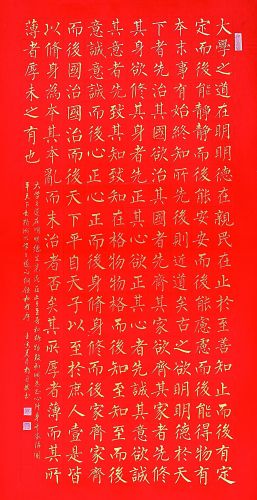 大學之道在明明德在親民在止於至善知止而後有定
定而後能靜靜而後能安安而後能慮慮而後能得物有
本末事有終始知所先後則近道矣古之欲明明德於天
下者先治其國欲治其國者先齊其家欲齊其家者先修
其身欲修其身者先正其心欲正其心者先誠其意欲誠
其意者先致其知致知在格物物格而後知至知至而後
意誠意誠而後心正心正而後身修身修而後家齊家齊
而後國治國治而後天下平自天子以至於庶人壹是皆
以修身為本其本亂而末治者否矣其所厚者薄而其所
薄者厚未之有也